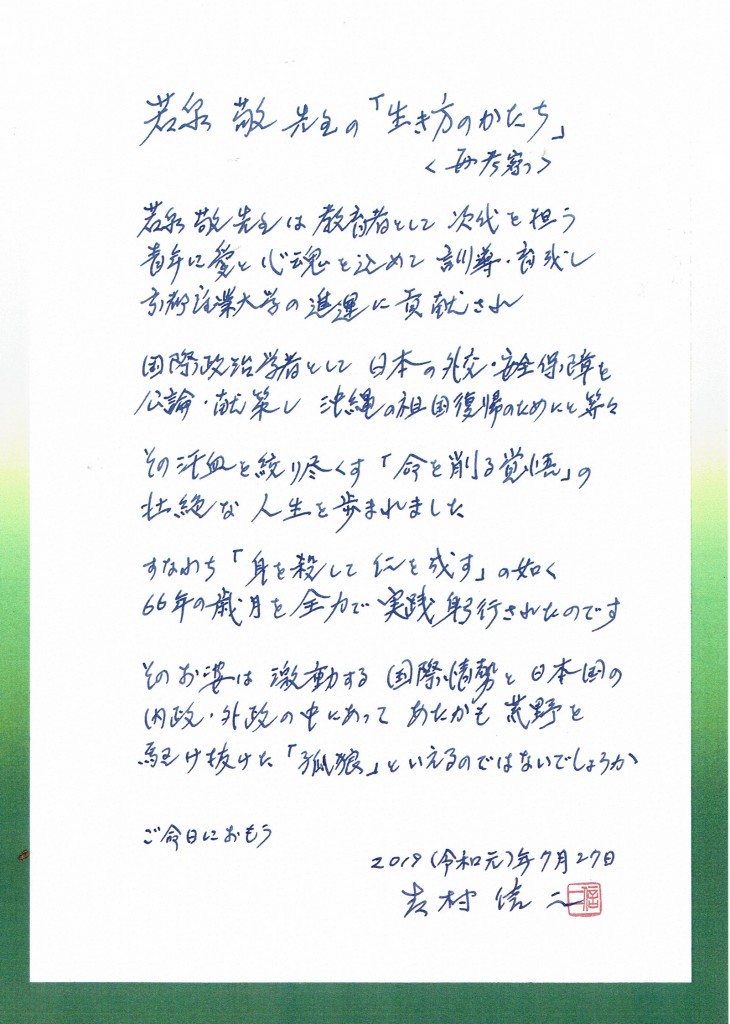 若泉 敬 先生の「生き方のかたち」
<再考察>
若泉 敬 先生は 教育者として 次代を担う
青年に愛と心魂を込めて 訓導・育成し
京都産業大学の進運に貢献され
国際政治学者として 日本の外交・安全保障を
公論・献策し 沖縄の祖国復帰のためにと等々
その汗血を絞り尽くす「命を削る覚悟」の
壮絶な 人生を歩まれました
すなわち「身を殺して 仁を成す」の如く
66年の歳月を全力で 実践躬行されたのです
そのお姿は 激動する 国際情勢と日本国の
内政・外政の中にあって あたかも 荒野を
駆け抜けた「孤狼」といえるのではないでしょうか
ご命日におもう
2019(令和元)年7月27日
吉村 信二